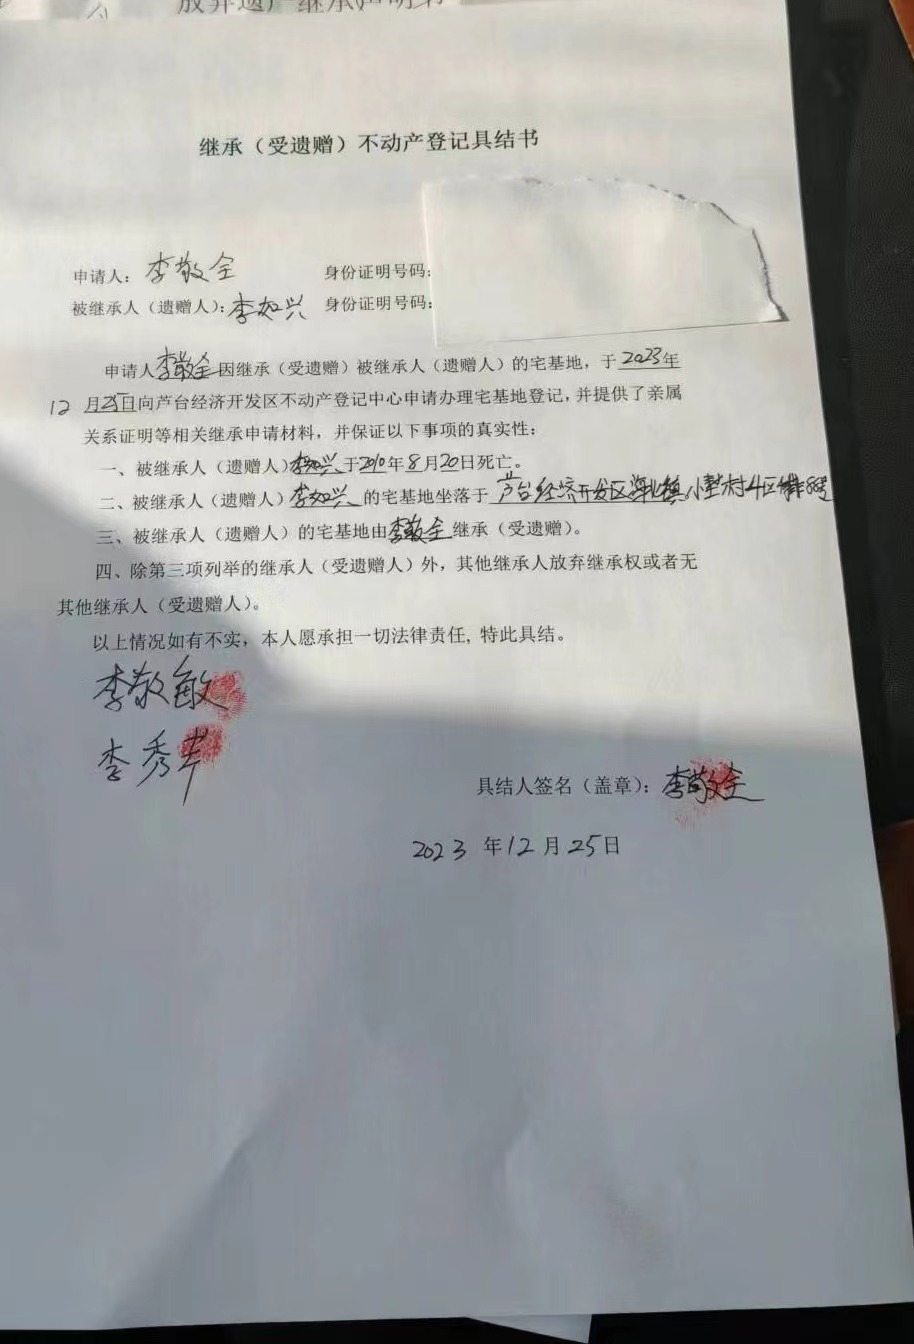 放弃遗产继承声明书
继承（受遗赠）不动产登记具结书
申请人：李敬全 身份证明号码：
被继承人（遗赠人）：李如兴 身份证明号码：
申请人李敬全因继承（受遗赠）被继承人（遗赠人）的宅基地，于2023年
12月25日向芦台经济开发区不动产登记中心申请办理宅基地登记，并提供了亲属
关系证明等相关继承申请材料，并保证以下事项的真实性：
一、被继承人（遗赠人）李如兴于2010年8月20日死亡。
二、被继承人（遗赠人）李如兴的宅基地坐落于芦台经济开发区海北镇小 村4区 排8号
三、被继承人（遗赠人）的宅基地由李敬全继承（受遗赠）。
四、除第三项列举的继承人（受遗赠人）外，其他继承人放弃继承权或者无
其他继承人（受遗赠人）。
以上情况如有不实，本人愿承担一切法律责任，特此具结。
李敬敏
李秀苹
具结人签名（盖章）：李敬全
2023年12月25日